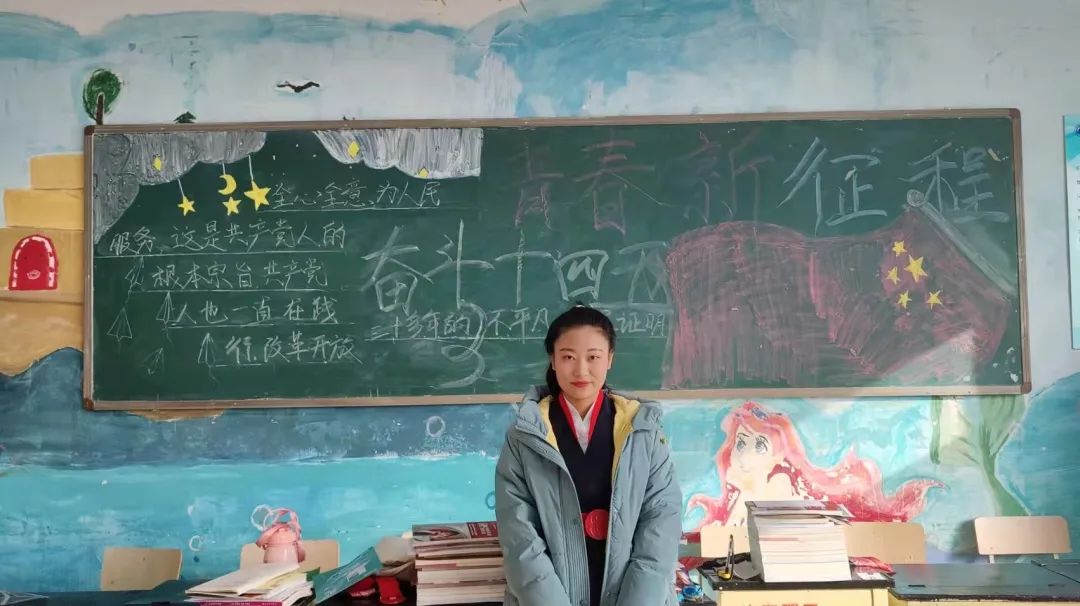 青春新征程
奋斗十四五
全心全意为人民
服务,这是共产党人的
根本宗旨共产党
人也一直在践
行.改革开放
三十多年的不平凡 证明